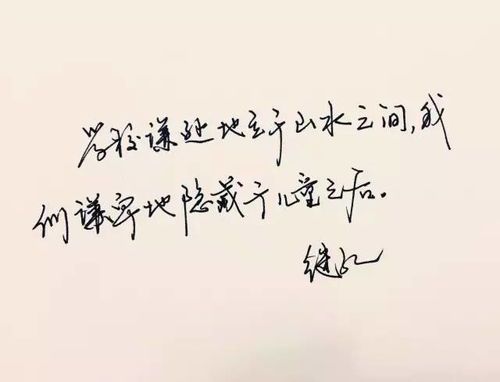 学校谦逊地立于山水之间,我
们谦卑地隐藏于儿童之后。